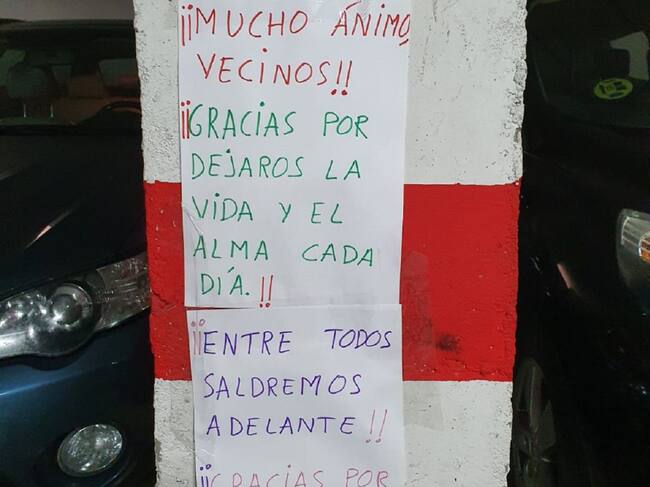 ¡¡MUCHO ÁNIMO,
VECINOS!!
¡¡GRACIAS POR
DEJAROS LA
VIDA Y EL
ALMA CADA
DÍA.!!
¡¡ENTRE TODOS
SALDREMOS
ADELANTE!!
¡¡GRACIAS POR